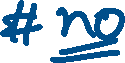 # no